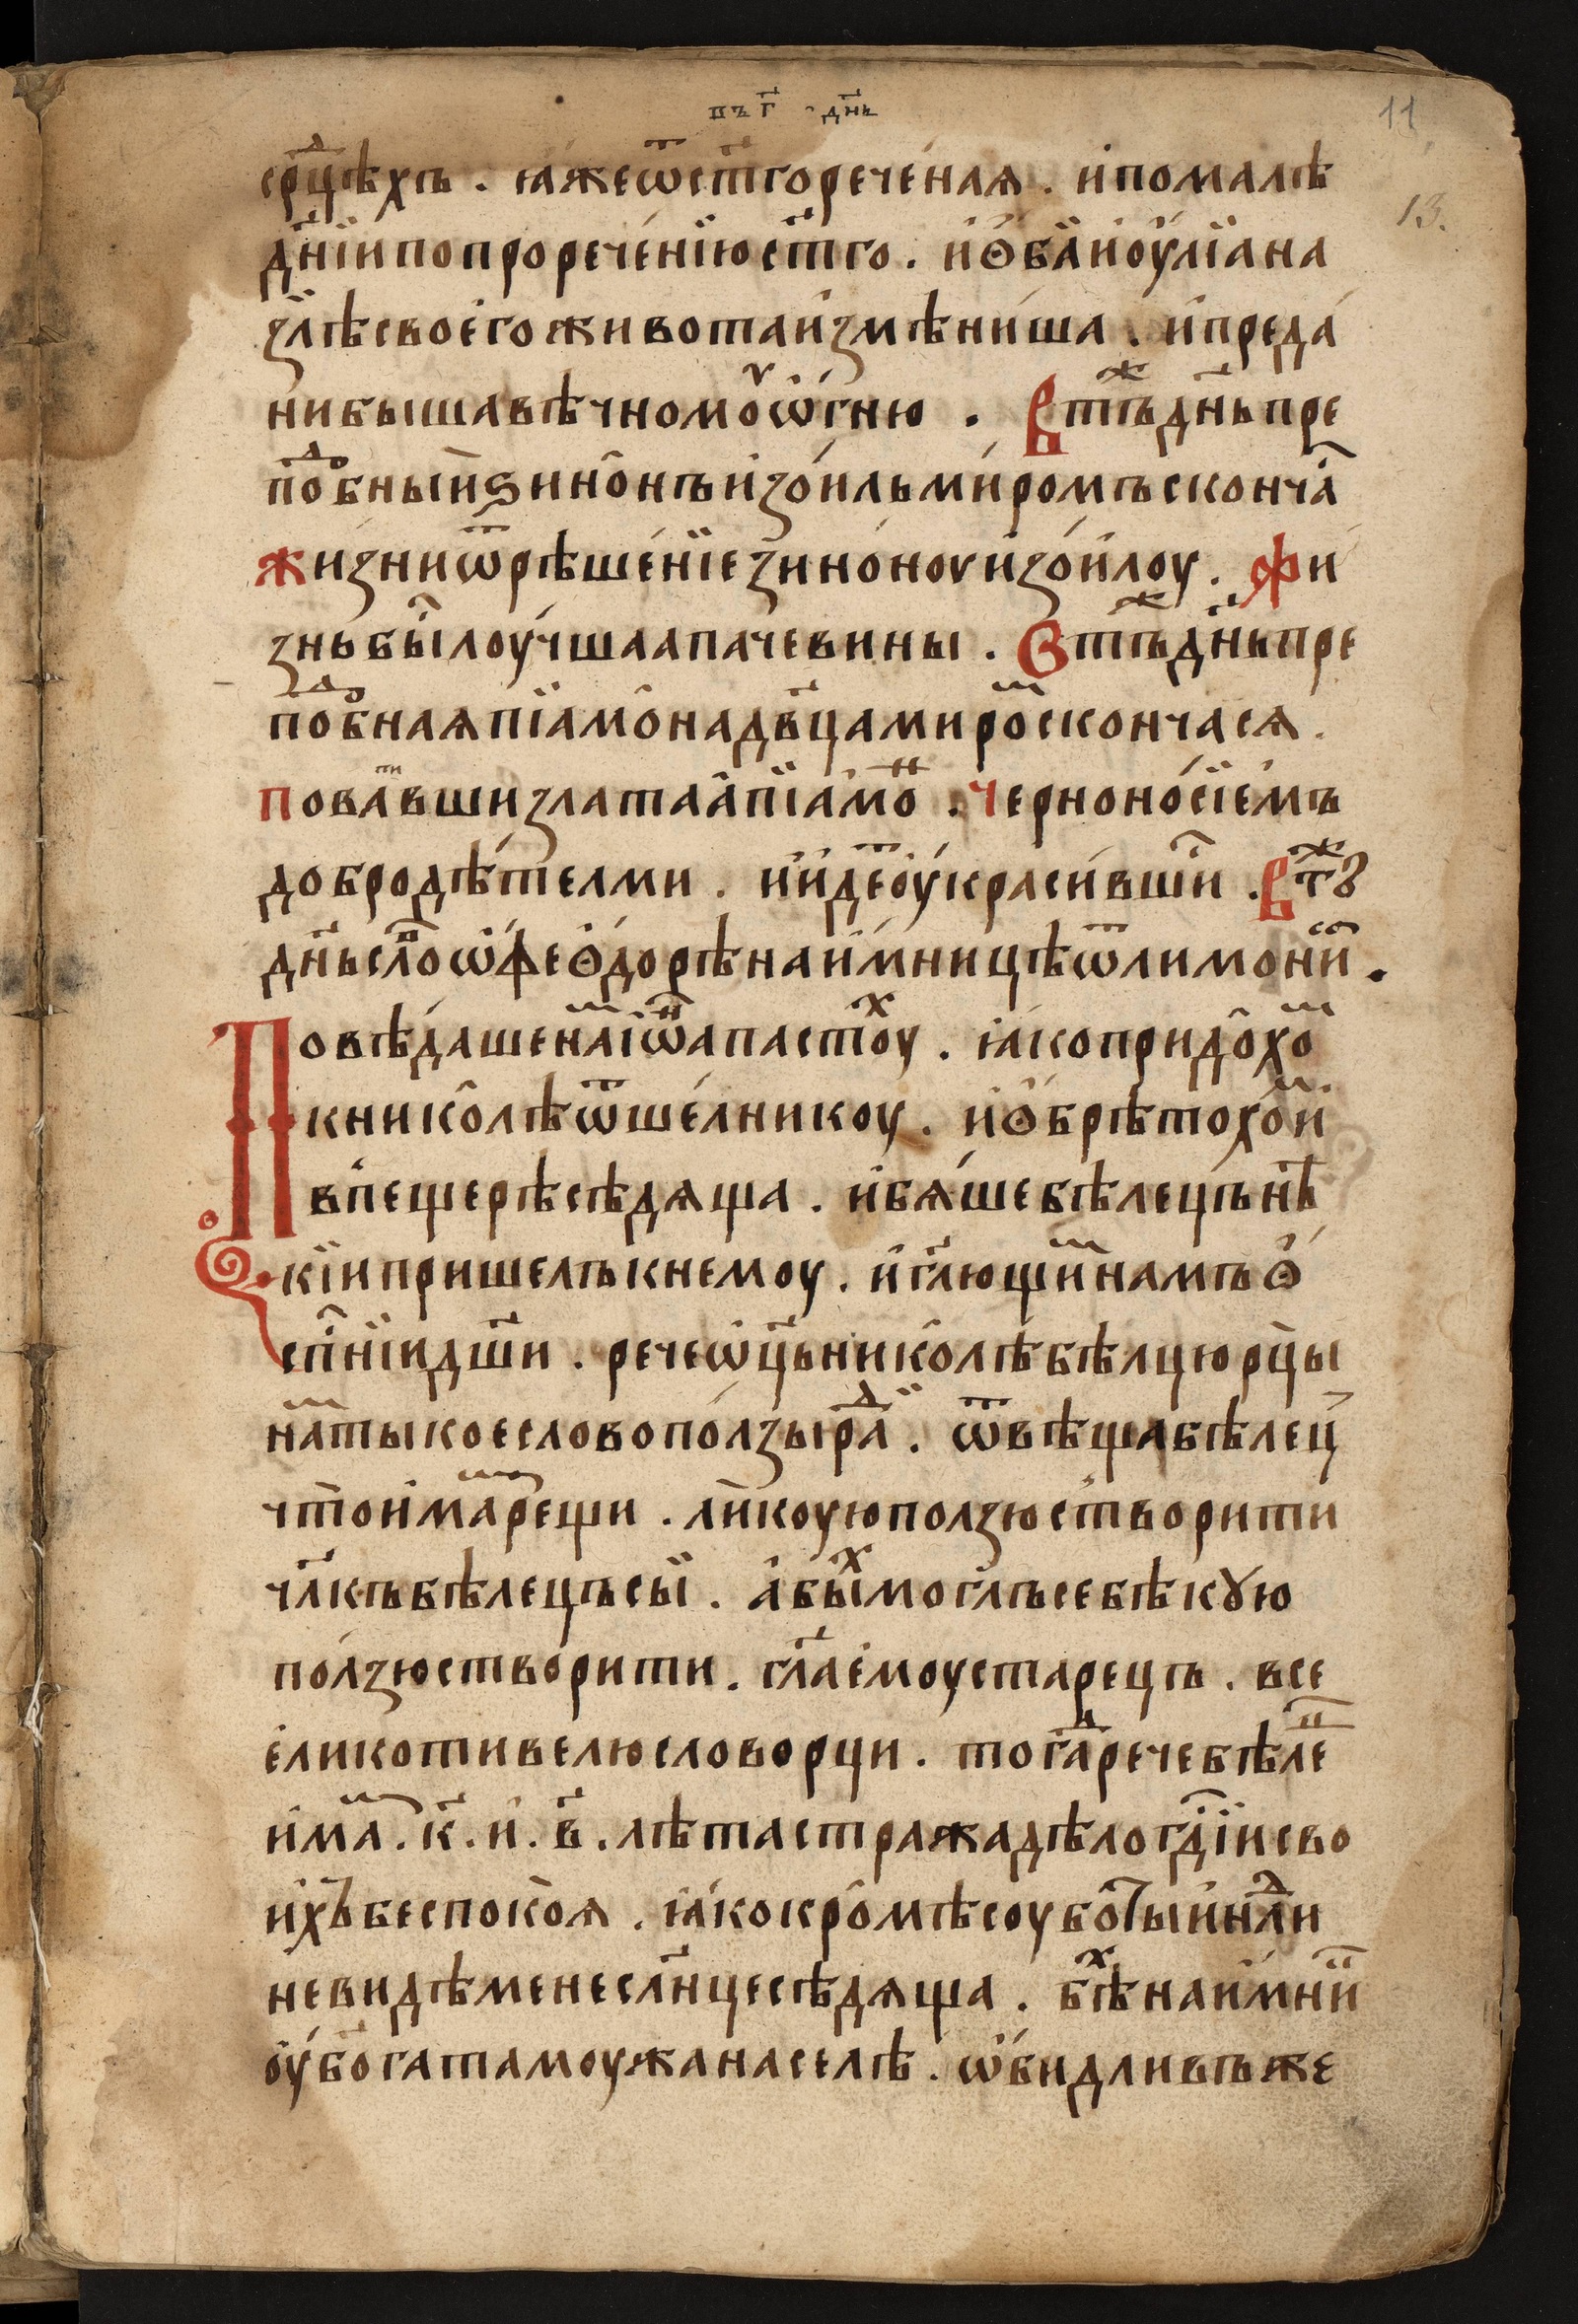 въ г҃ днь
11
срⷣцѣхъ . ꙗже ѿ ст҃го рече́наѧ . и҆ по малѣ
13.
дн҃їи по проречені́ю ст҃го . и҆ ѻ҆ба̀ и҆ оу҆лїана
злѣ своего живота и҆змѣни́ша . и҆ преда́
ни быша вѣчномоу ѡ҆гню . В тъⷤ дн҃ь пре
поⷣбныи ѕинѻнъ и҆ зо́иль ми́ромъ сконча̑
жизни ѿрѣше́нїе зино́ноу и҆ зо́илоу . жи
знь бы̑ лоу́чшаа паче вины . В тъⷤ дн҃ь пре
поⷣбнаѧ пїамѡна дв҃ца миро скончасѧ .
поваⷩвши злата̑а пїамо . черноно́сїемъ
добродѣ́телми . и҆ и҆дѣ́ю оу҆краси́вши . В тⷤꙋ
дн҃ь слоⷡ ѡ҆ фео́дорѣ наи҆мницѣ ѿ лимоніи .
Повѣ́даше наⷨ і҆ѡаⷩ пастоⷯу . ꙗ́ко придо̑хоⷨ
к николѣ ѿше́лникоу . и҆ ѻ҆брѣтохоⷨ и
в пещерѣ сѣдѧща . и҆ бѧ́ше бѣлецъ нѣ
кїи пришелъ к немоу . и҆ гл҃ющи намъ ѻ҆
сп҃нїи дш҃и . рече ѡ҆ц҃ь никѻлѣ бѣлцю рцы
наⷨ ты кое слово по́лзы раⷣ . ѿвѣща бѣлец
что и҆маⷨ рещи . ли коую ползю створити
чл҃къ бѣлецъ сы . а҆ быⷯ моглъ себѣ кꙋю
по́лзю створити . гл҃а е҆моу старецъ . все
е҆лико ти велю слово рци . тогдⷣа рече бѣлеⷰ
и҆маⷨ . к҃ . и҆ . в҃ . лѣта стража дѣло гд҃їи сво
и҆хъ бес покоѧ . ꙗ́ко кро̑мѣ соубоⷮы и҆ нлⷣи
не видѣ мене слн҃це сѣдѧща . бѣⷯ наи҆мни
оу҆ богата моужа на селѣ . ѡ҆бидливъ же